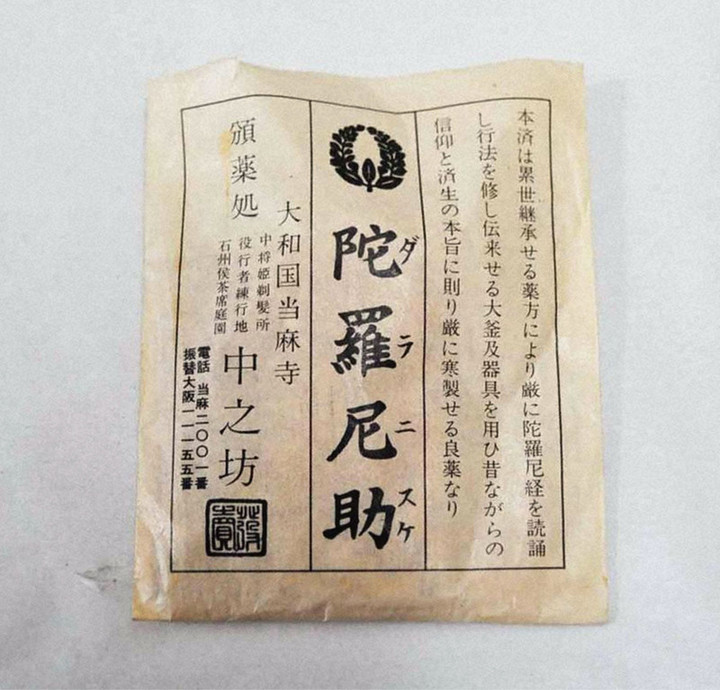 本済は累世継承せる薬方により厳に陀羅尼経を読誦
し行法を修し伝来せる大釜及器具を用ひ昔ながらの
信仰と済生の本旨に則り厳に寒製せる良薬なり
陀羅尼助
ダラニスケ
大和国当麻寺
頒薬処
中将姫剃髪所
役行者練行地
石州侯茶席庭園
中之坊
電話 当麻二〇〇一番
振替大阪一一一五五番